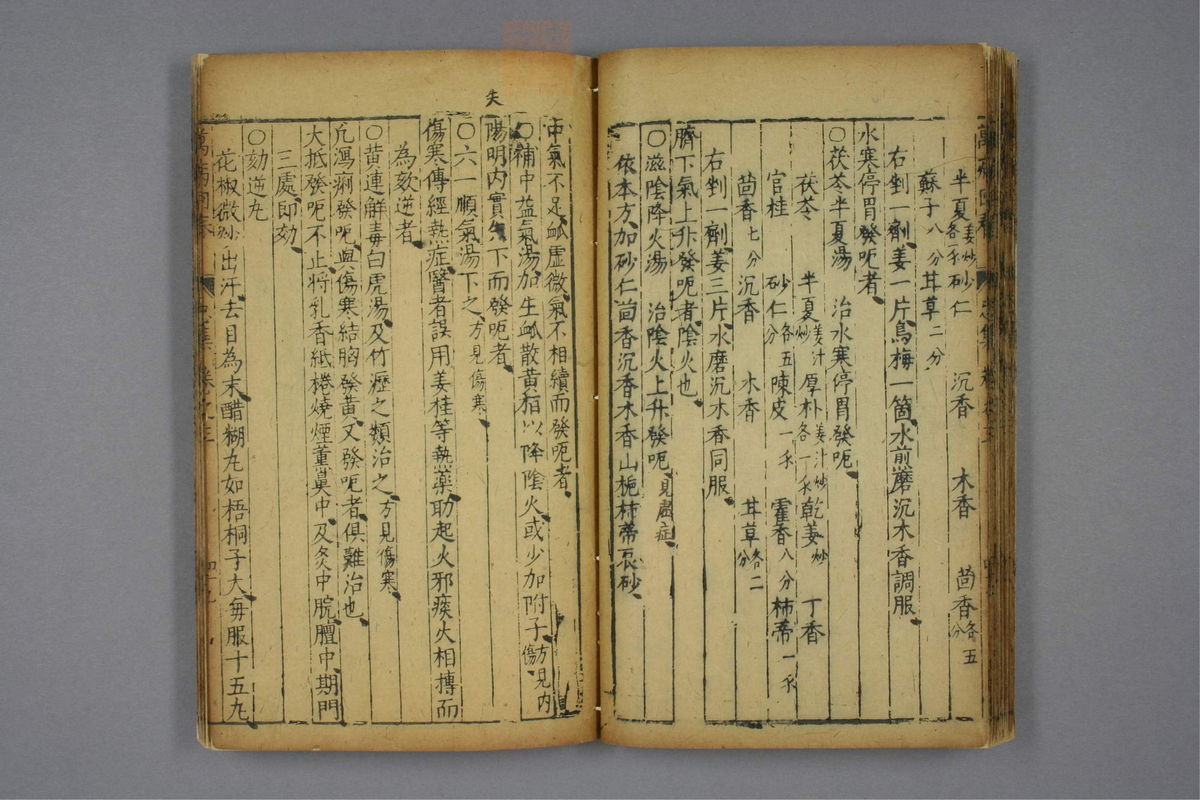 半夏姜炒各一錢 砂仁 沉香 木香 茴香各五分
蘇子八分 甘草二分
右剉一劑姜一片烏梅一箇水煎磨沉木香調服
水寒停胃發呃者
○茯苓半夏湯 治水寒停胃發呃
茯苓 半夏姜汁炒 厚朴姜汁炒各一錢 乾姜炒 丁香
官桂 砂仁各五分 陳皮一錢 霍香八分 柿蒂一錢
茴香七分 沉香 木香 甘草各二分
右剉一劑姜三片水磨沉木香同服
臍下氣上升發呃者陰火也
○滋陰降火湯 治陰火上升發呃見虛症
依本方加砂仁茴香沉香木香山梔柿蒂辰砂
中氣不足血虛微氣不相續而發呃者
○補中益氣湯加生血散黃栢以降陰火或少加附子方見內傷
陽明內實失下而發呃者
○六一順氣湯下之方見傷寒
傷寒傳經熱症醫者誤用姜桂等熱藥助起火邪痰火相搏而
為欬逆者
○黃連解毒白虎湯及竹瀝之類治之方見傷寒
凢瀉痢發呃與傷寒結胸發黃又發呃者俱難治也
大抵發呃不止將乳香紙捲燒煙薰鼻中及灸中脘膻中期門
三處即効
○劾逆丸
花椒微炒出汗去目為末醋糊丸如梧桐子大每服十五丸
失